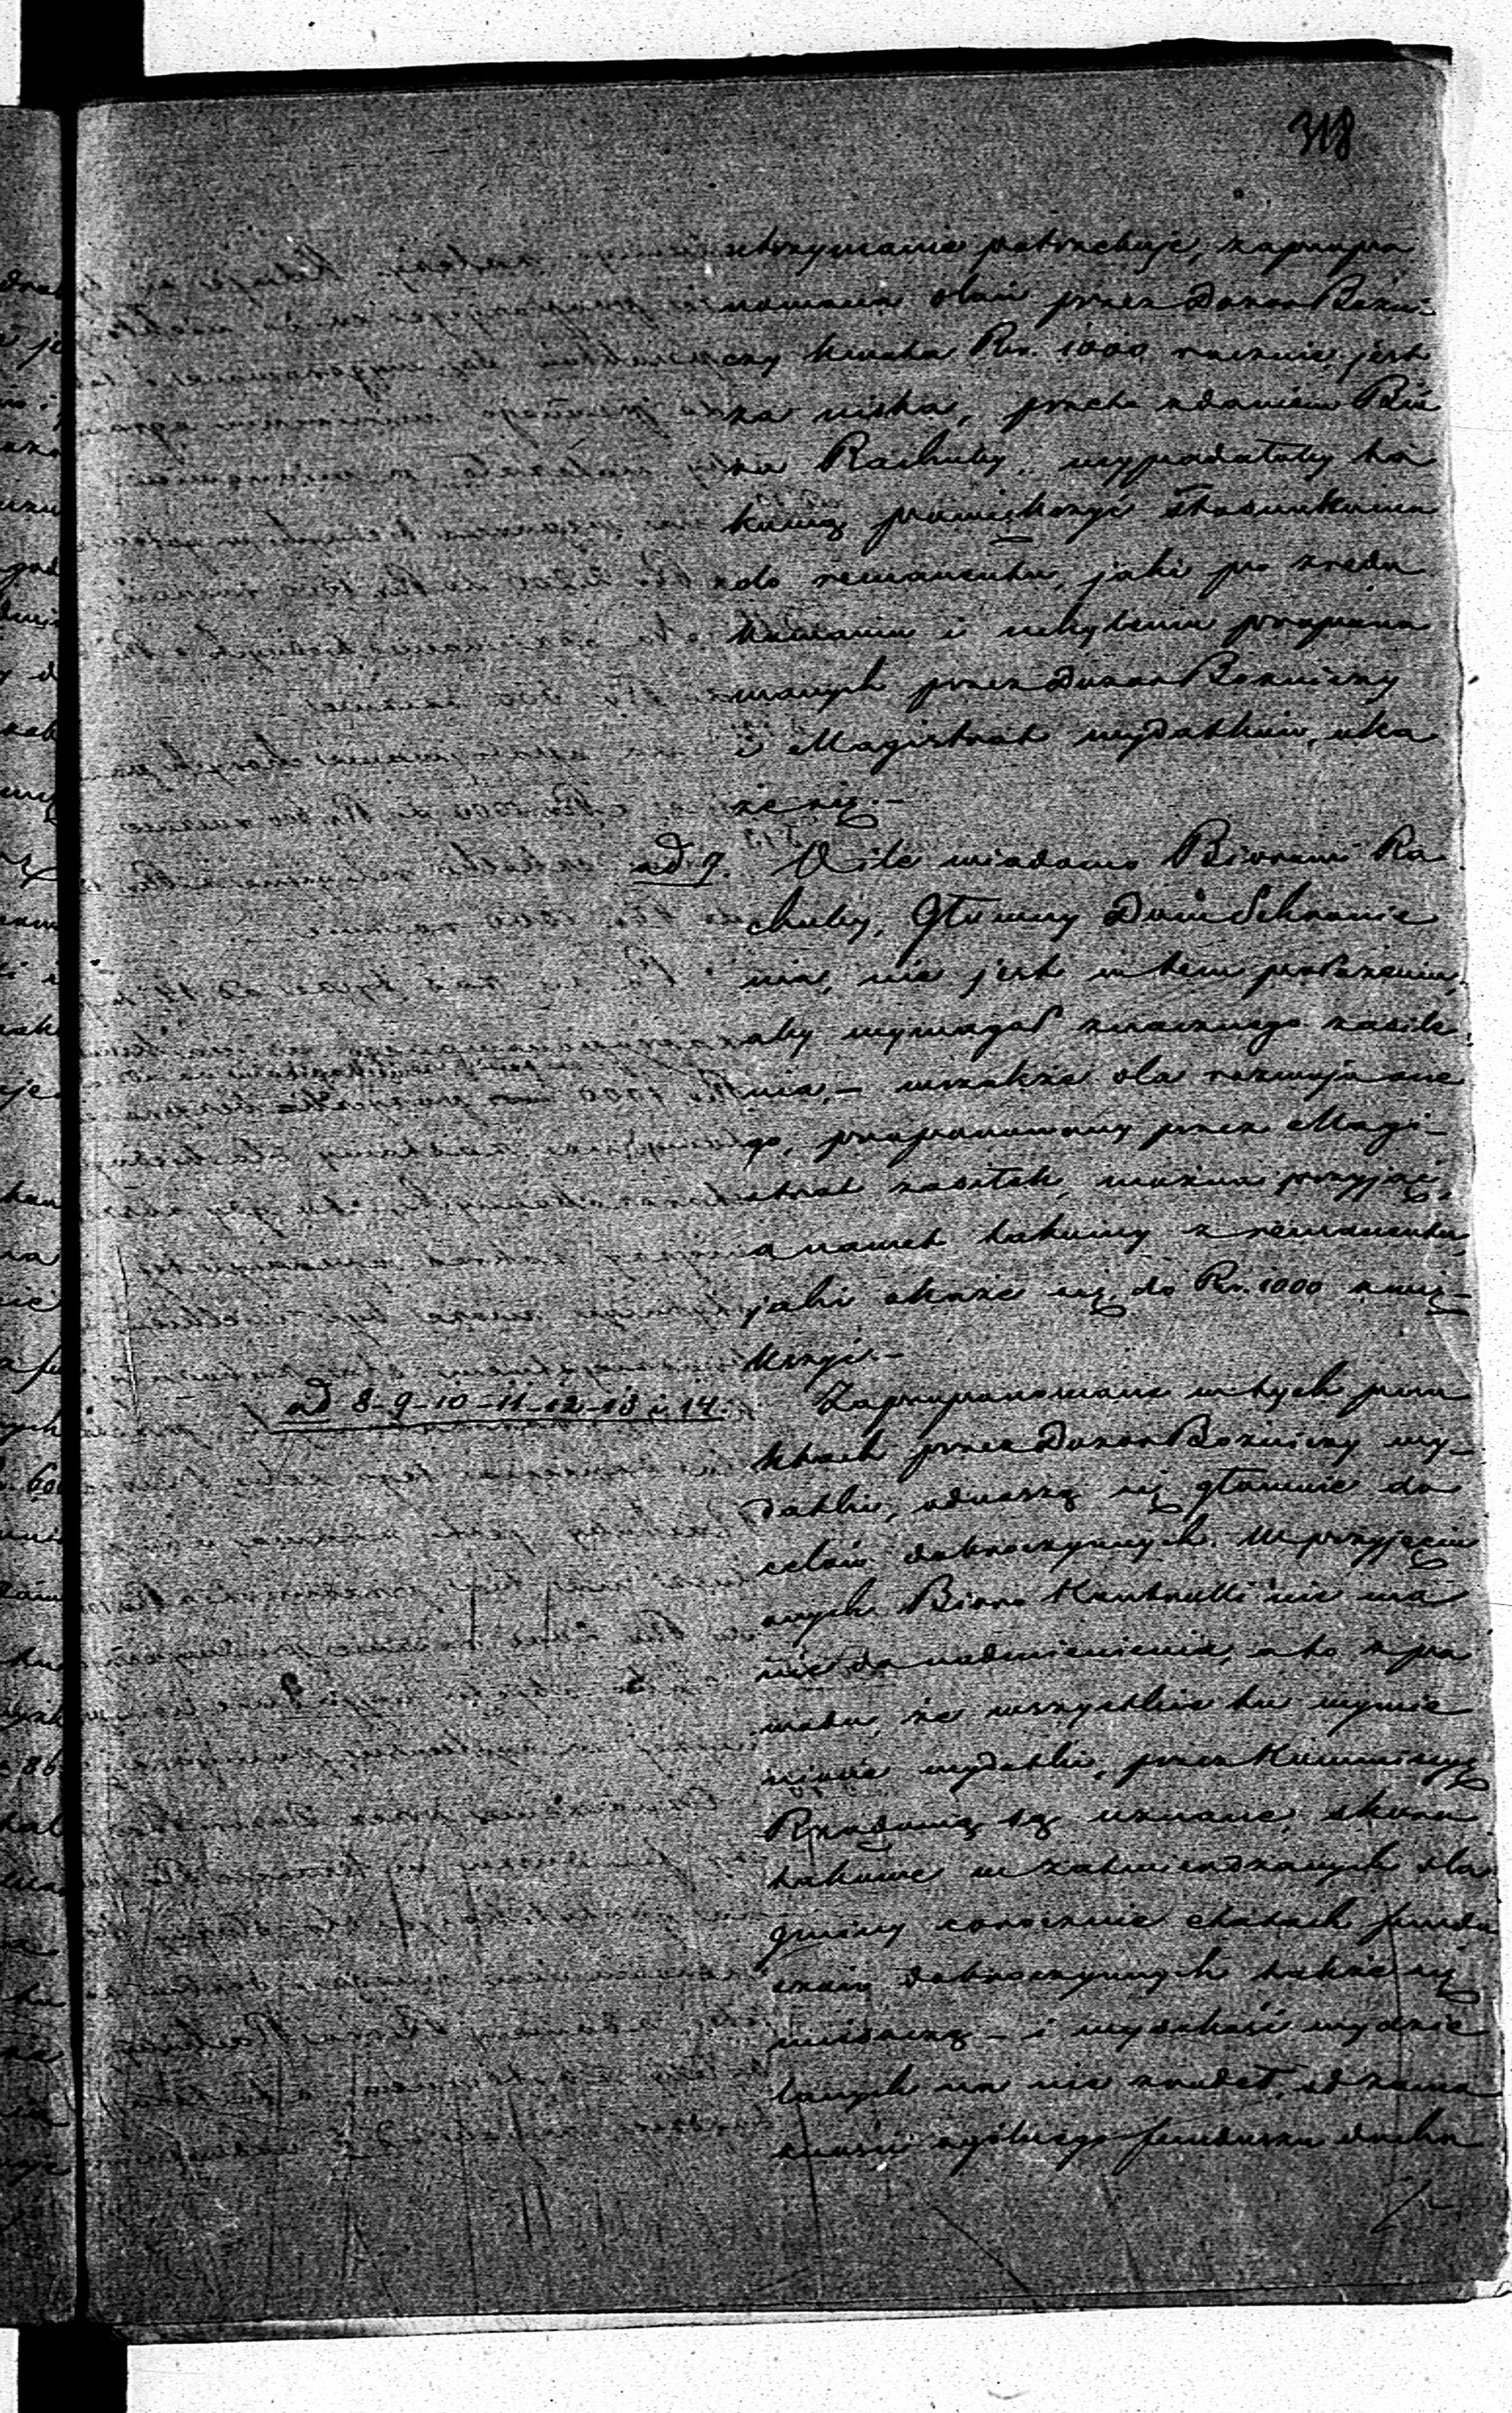 318
utrzymanie potrzebuje, zapropo
nowana  przez Dozór Bóżni-
czy kwota Rs. 1000 rocznie, jest
za niska, przeto zdaniem Biu
ra Rachuby, wypadałoby ta
kową powiększyć stosunkowo
do remanentu, jaki po zredu
kowaniu i uchyleniu propono
wanych przez Dozór Bóżniczy
i Magistrat wydatków, oka
że się.—
ad 7. O ile wiadomo Biorowi Ra
chuby, Główny Dom Schronie
nia, nie jest w tem położeniu,
aby wymagał znacznego zasile
nia,— wszakże dla rozwoju one
go, proponowany przez Magi-
strat zasiłek, można przyjąć,
a nawet takowy z remanentu,
jaki okaże się, do Rs. 1000 zwię-
kszyć.—
ad 8-9-10-11-12-13 i 14. Zaproponowane w tych pun
ktach przez Dozór Bóżniczy wy-
datki, odnoszą się głównie do
celów dobroczynnych. W przyjęciu
onych Bióro Kontrolli nie ma
nic do nadmienienia, a to z po
wodu, że wszystkie tu wymie
nione wydatki, przez Kommissyę
Rządową są uznane, skoro
takowe w zatwierdzonych dla
gminy corocznie etatach fundu
szów dobroczynnych także się
mieszczą — i wysokość wydzie
lanych na nie źródeł, od zamo
żności ogólnego funduszu docho